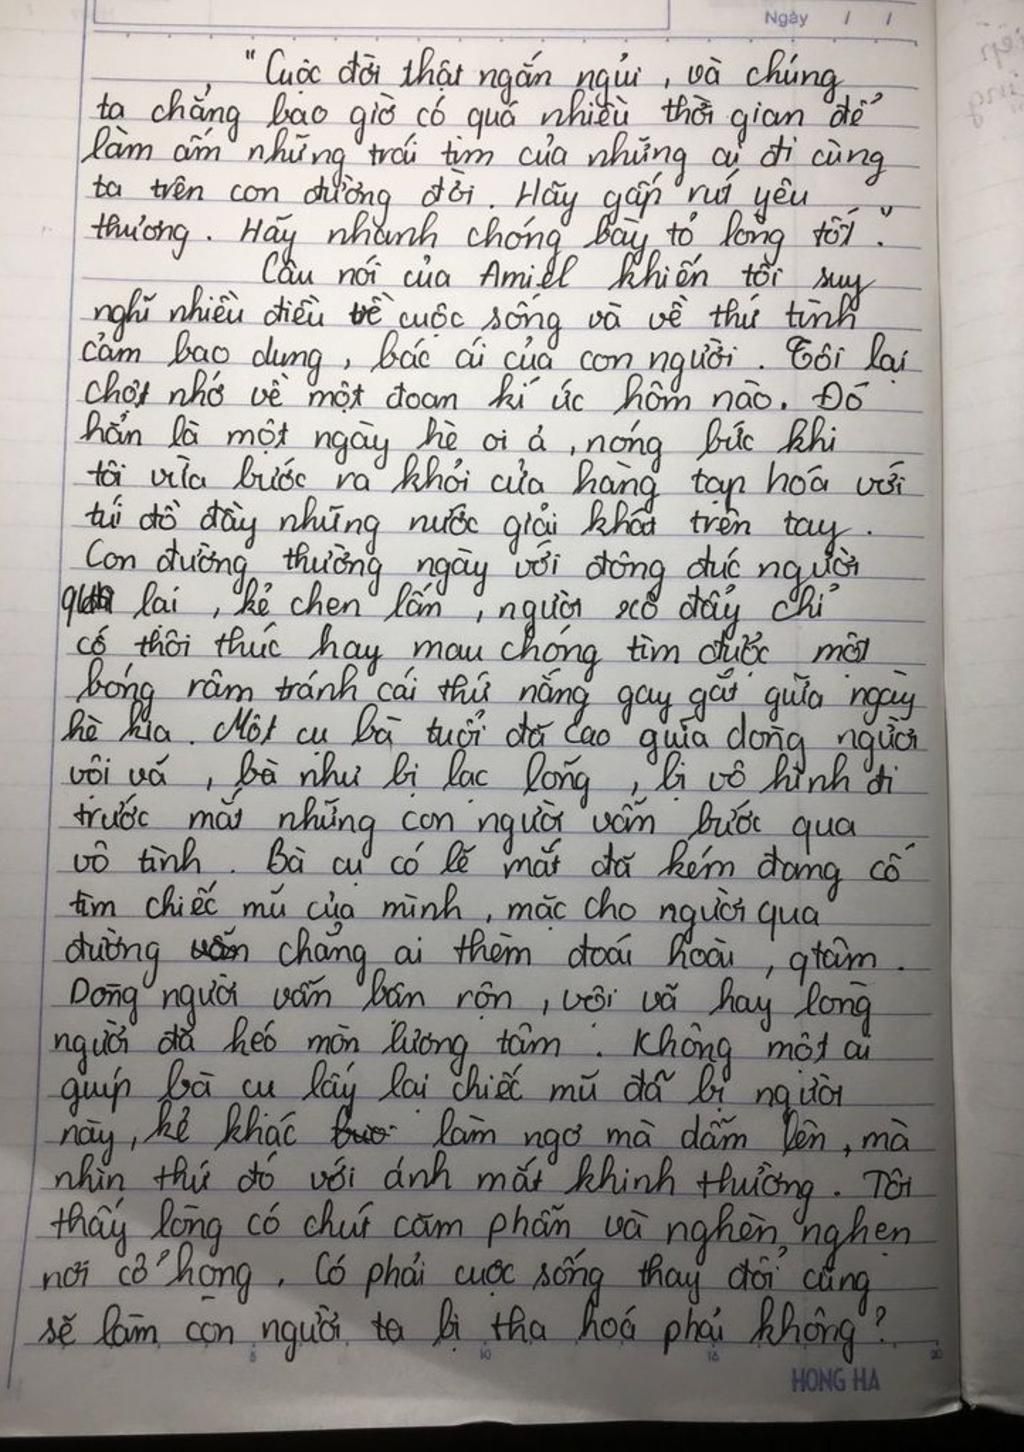 Ngày / /
"Cuộc đời thật ngắn ngủi, và chúng
ta chẳng bao giờ có quá nhiều thời gian để
làm ấm những trái tim của những ai đi cùng
ta trên con đường đời. Hãy gấp rút yêu
thương. Hãy nhanh chóng bày tỏ lòng tốt."
Câu nói của Amiel khiến tôi suy
nghĩ nhiều điều về cuộc sống và về thứ tình
cảm bao dung, bác ái của con người. Tôi lại
chợt nhớ về một đoạn kí ức hôm nào. Đó
hẳn là một ngày hè oi ả, nóng bức khi
tôi vừa bước ra khỏi cửa hàng tạp hoá với
túi đồ đầy những nước giải khát trên tay.
Con đường thường ngày với đông đúc người
lại, kẻ chen lấn, người xô đẩy chỉ
cố thôi thúc hay mau chóng tìm được một
bóng râm tránh cái thứ nắng gay gắt giữa ngày
hè kia. Một cụ bà tuổi đã cao giữa dòng người
vội vã, bà như bị lạc lõng, bị vô hình đi
trước mắt những con người vẫn bước qua
vô tình. Bà cụ có lẽ mắt đã kém đang cố
tìm chiếc mũ của mình, mặc cho người qua
đường chẳng ai thèm đoái hoài, qtâm.
Dòng người vẫn bận rộn, vội vã hay lòng
người đã héo mòn lương tâm. Không một ai
giúp bà cụ lấy lại chiếc mũ đã bị người
này, kẻ khác làm ngơ mà dẫm lên, mà
nhìn thứ đó với ánh mắt khinh thường. Tôi
thấy lòng có chút căm phẫn và nghèn nghẹn
nơi cổ họng. Có phải cuộc sống thay đổi cũng
sẽ làm con người ta bị tha hoá phải không?
5 10 15 20
HONG HA